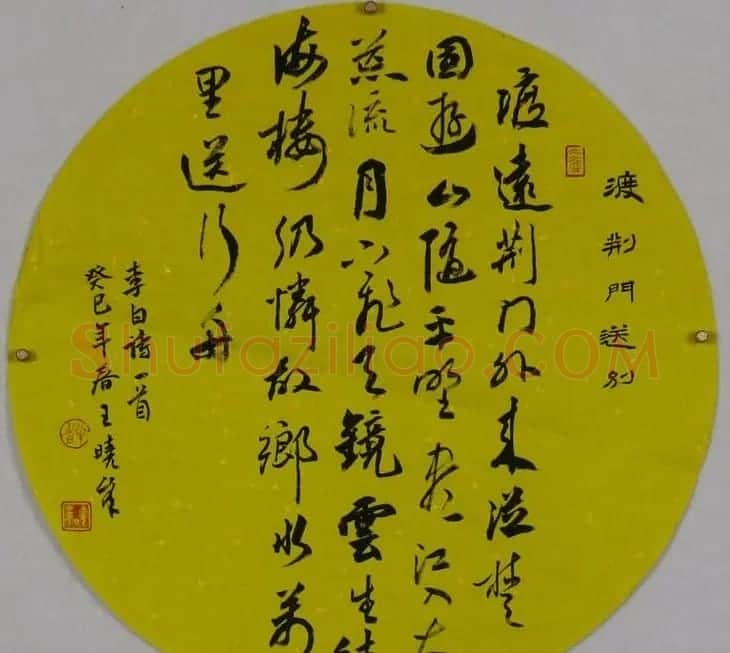 渡荆門送别
渡遠荆门外来從楚
国遊山隨平野盡江入大
荒流月下飛天鏡雲生结
海楼仍憐故鄉水萬
里送行舟
李白詩一首
癸巳年春王曉
Shufaziliao.COM